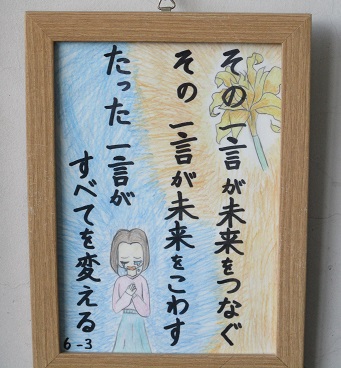 その一言が未来をつなぐ
その一言が未来をこわす
たった一言が
すべてを変える
6-3